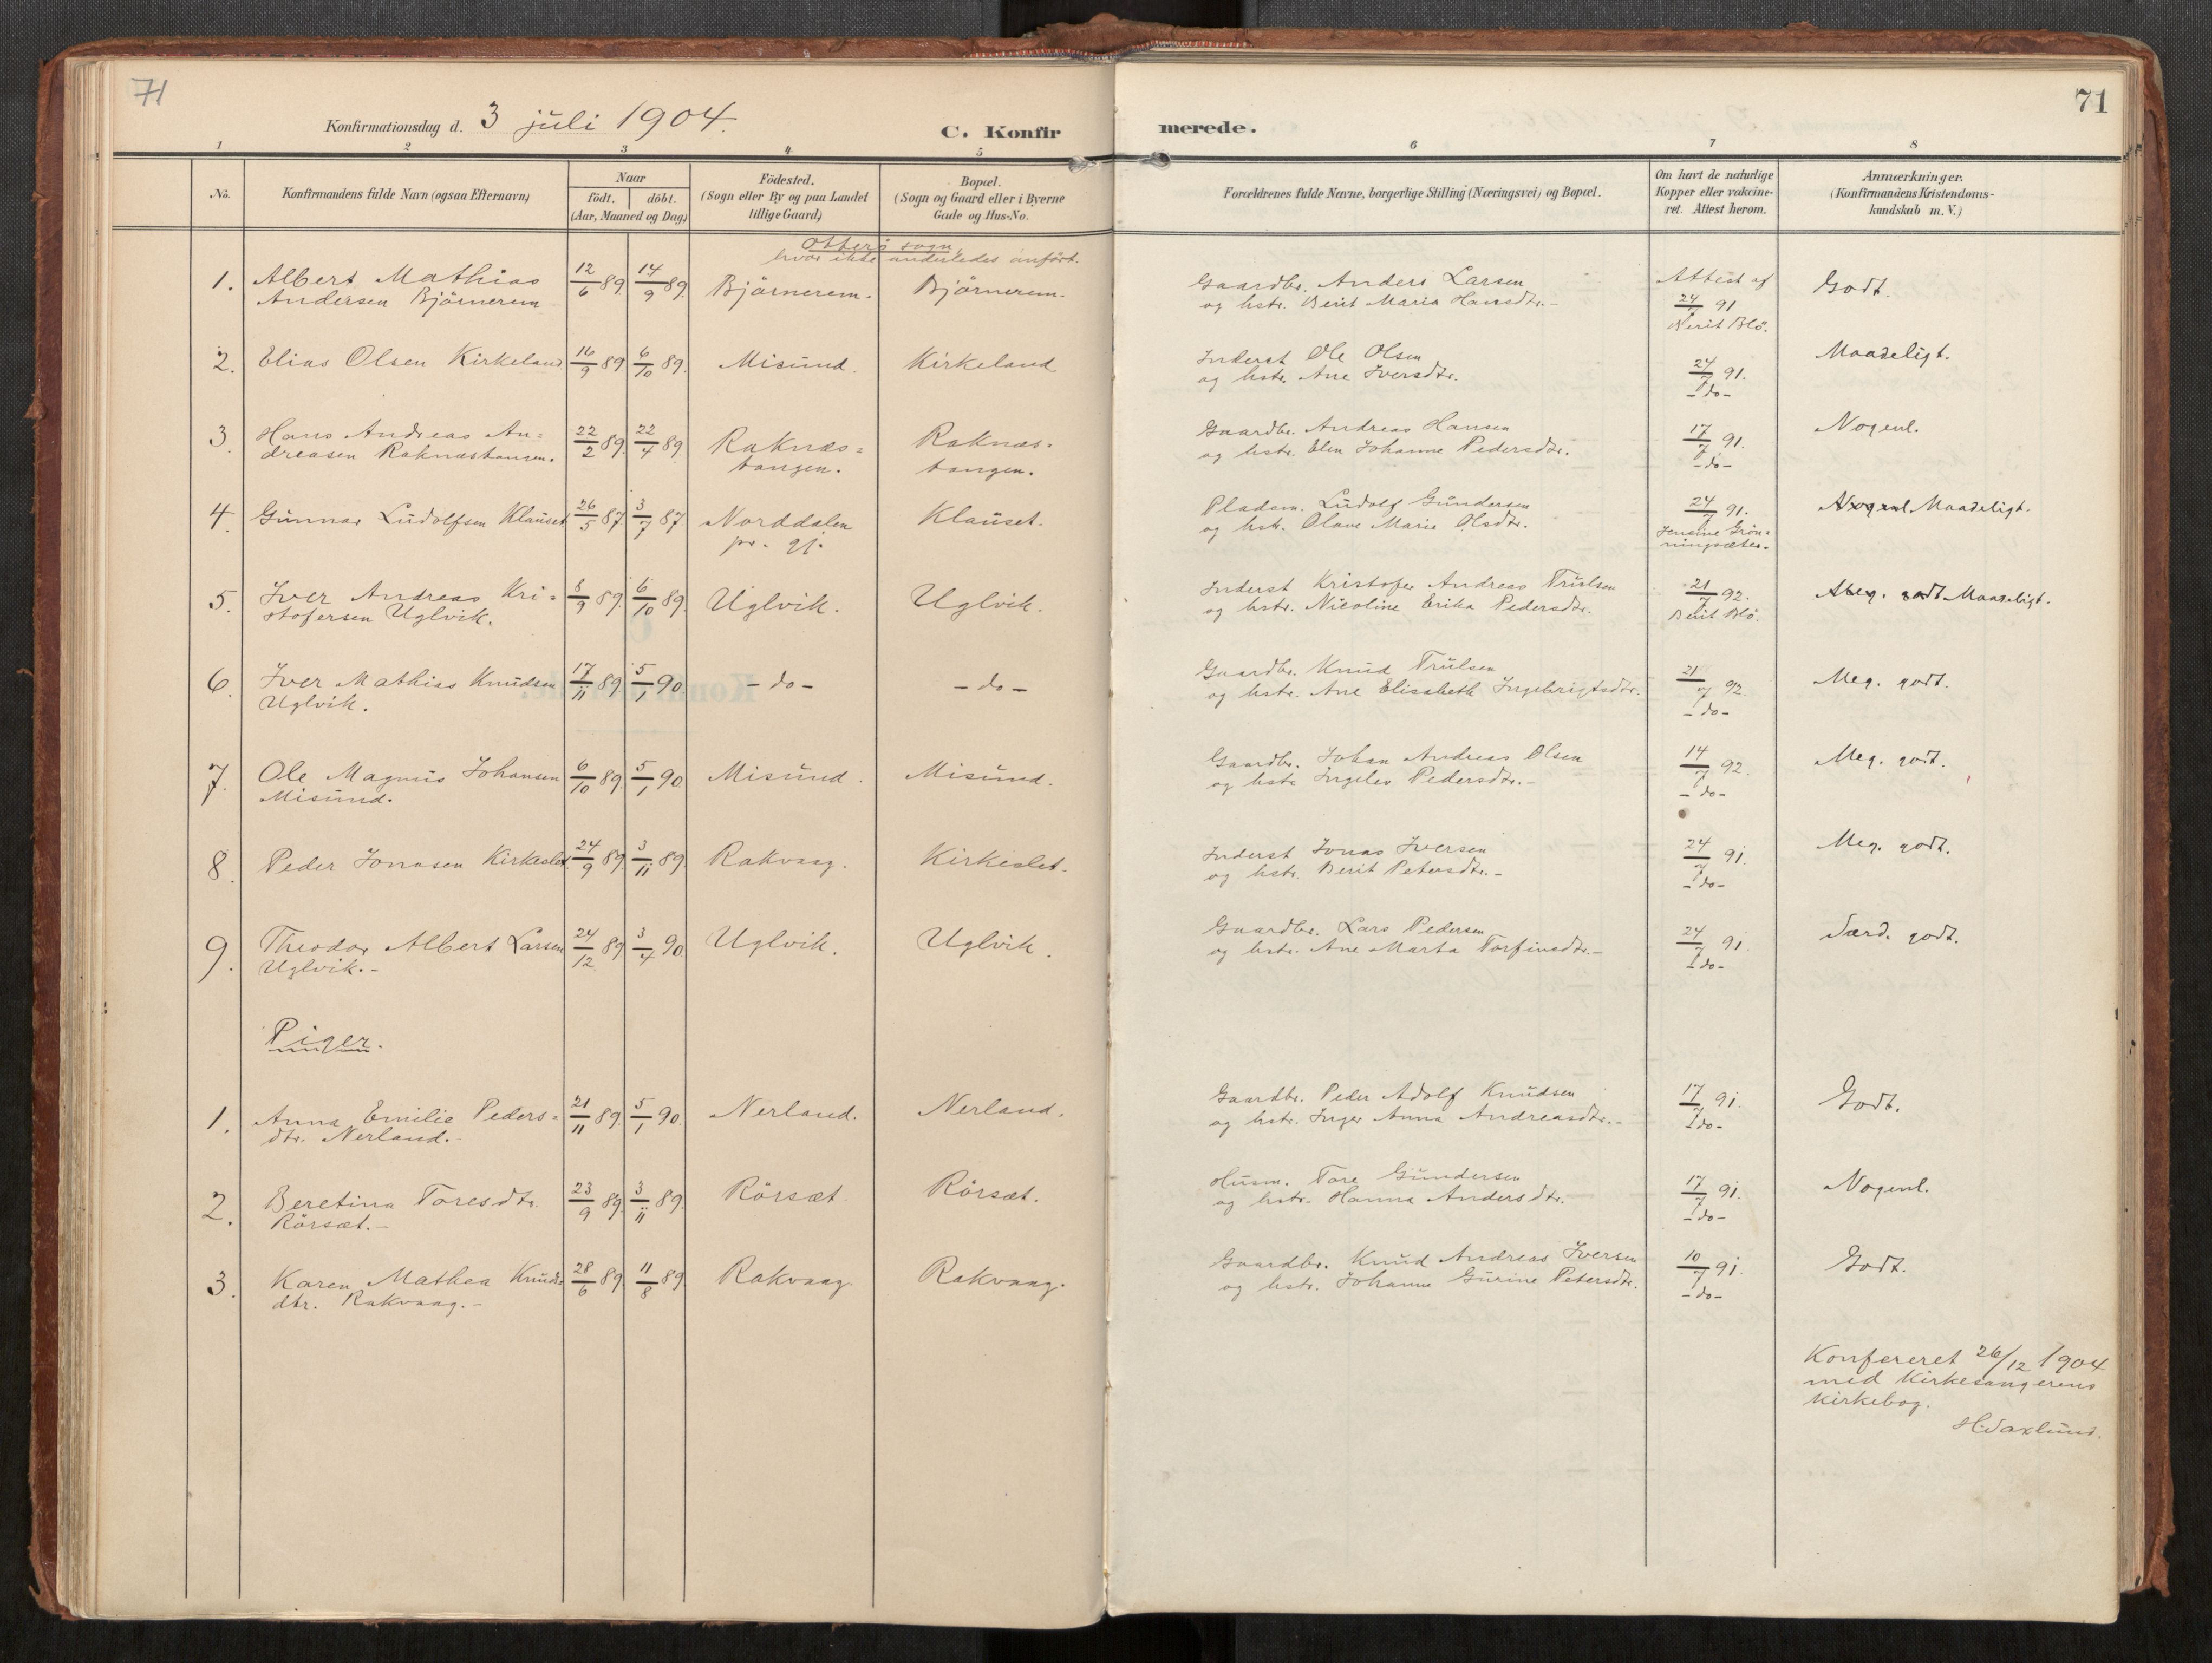 71
Konfirmationsdag d. 3 juli 1904.
C. Konfirmerede.
71
1 2 3 4 5 6 7 8
No.
Konfirmandens fulde Navn (ogsaa Efternavn)
Naar
födt. döbt.
(Aar, Maaned og Dag)
Födested.
(Sogn eller By og paa Landet
tillige Gaard)
Bopæl.
(Sogn og Gaard eller i Byerne
Gade og Hus-No.
Forældrenes fulde Navne, borgerlige Stilling (Næringsvei) og Bopæl.
Om havt de naturlige
Kopper eller vakcine-
ret. Attest herom.
Anmærkninger.
(Konfirmandens Kristendoms-
kundskab m. V.)
Otterö sogn,
hvor ikke anderledes anfört.
1. Albert Mathias 12/6 89. 14/9 89. Björnerem. Björnerem. Gaardbr. Anders Larsen Attest af Godt.
Andersen Björnerem og hstr. Berit Maria Hansdtr.- 24/7 91
Berit Blö.
2. Elias Olsen Kirkeland 16/9 89 6/10 89. Misund. Kirkeland Inderst Ole Olsen 24/7 91. Maadeligt.
og hstr. Ane Iversdtr. -do-
3. Hans Andreas An= 22/2 89. 22/4 89. Raknæs= Raknæs= Gaardbr. Andreas Hansen 17/7 91. Nogenl.
dreasen Raknæstangen. tangen. tangen. og hstr. Elen Johanne Pedersdtr. -do-
4. Gunnar Ludolfsen Klauset 26/5 87. 3/7 87. Norddalen Klauset. Pladsm. Ludolf Gundersen 24/7 91. Nogenl. Maadeligt.
pr. gj. og hstr. Olave Marie Olsdtr. Jensine Grön=
ningsæter.
5. Iver Andreas Kri= 8/9 89. 6/10 89. Uglvik. Uglvik. Inderst Kristofer Andreas Trulsen 21/7 92. Meg. godt Maadeligt.
stofersen Uglvik. og hstr. Nicoline Erika Pedersdtr. Berit Blö.
6. Iver Mathias Knudsen 17/11 89. 5/1 90. -do- -do- Gaardbr. Knud Trulsen 21/7 92. Meg. godt.
Uglvik. og hstr. Ane Elisabeth Ingebrigtsdtr. -do-
7. Ole Magnus Johansen 6/10 89. 5/1 90. Misund. Misund. Gaardbr. Johan Andreas Olsen 14/7 92. Meg. godt.
Misund. og hstr. Ingelev Pedersdtr.- -do-
8. Peder Jonasen Kirkeslet 24/9 89. 3/11 89. Rakvaag. Kirkeslet. Inderst Jonas Iversen 24/7 91. Meg. godt.
og hstr. Berit Petersdtr.- -do-
9. Theodor Albert Larsen 24/12 89. 3/4 90. Uglvik. Uglvik. Gaardbr. Lars Pedersen 24/7 91. Særd. godt.
Uglvik.- og hstr. Ane Marta Torfinsdtr.- -do-
Piger.
1. Anna Emilie Peders= 21/11 89. 5/1 90. Nerland. Nerland. Gaardbr. Peder Adolf Knudsen 17/7 91. Godt.
dtr. Nerland.- og hstr. Inger Anna Andreasdtr.- -do-
2. Beretina Toresdtr. 23/9 89. 3/11 89. Rörsæt. Rörsæt. Husm. Tore Gundersen 17/7 91. Nogenl.
Rörsæt.- og hstr. Hanna Andersdtr. -do-
3. Karen Mathea Knuds 28/6 89. 11/8 89. Rakvaag. Rakvaag. Gaardbr. Knud Andreas Iversen 10/7 91. Godt.
dtr. Rakvaag.- og hstr. Johanne Gurine Petersdtr. -do-
Konfereret 26/12 1904
med Kirkesangerens
kirkebog.
H. Saxlund.